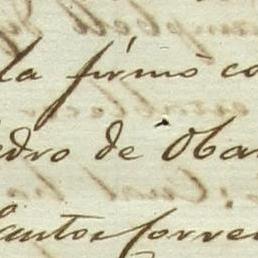 la firmó co
edro de Oba
Santos Corre